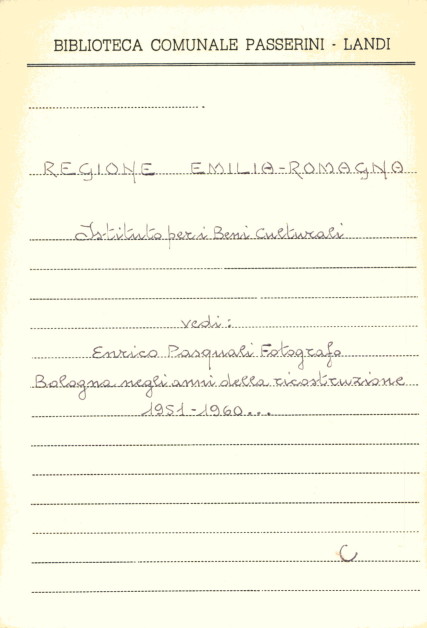 BIBLIOTECA COMUNALE PASSERINI - LANDI
REGIONE EMILIA-ROMAGNA
Istituto per i Beni Culturali
vedi:
Enrico Pasquali Fotografo
Bologna negli anni della ricostruzione
1951-1960...
C